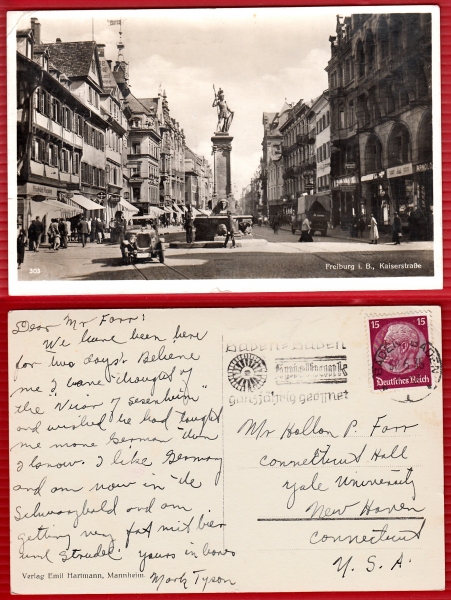 303
Freiburg i. B., Kaiserstraße
Dear Mr Farr:
We have been here
for two days. Believe
me I have thought of
the "Vicar of Sesenheim"
and wished he had taught
me more German than
I know. I like Germany
and am now in the
Schwarzbald and am
getting very fat mit bier
und Strudel. yours in bonos
Mark Tyson
Verlag Emil Hartmann, Mannheim
Baden-Baden
ganzjährig geöffnet
15 15
Deutsches Reich
BADEN-BADEN
Mr Hollon P. Farr
Connecticut Hall
Yale University
New Haven
Connecticut
U. S. A.